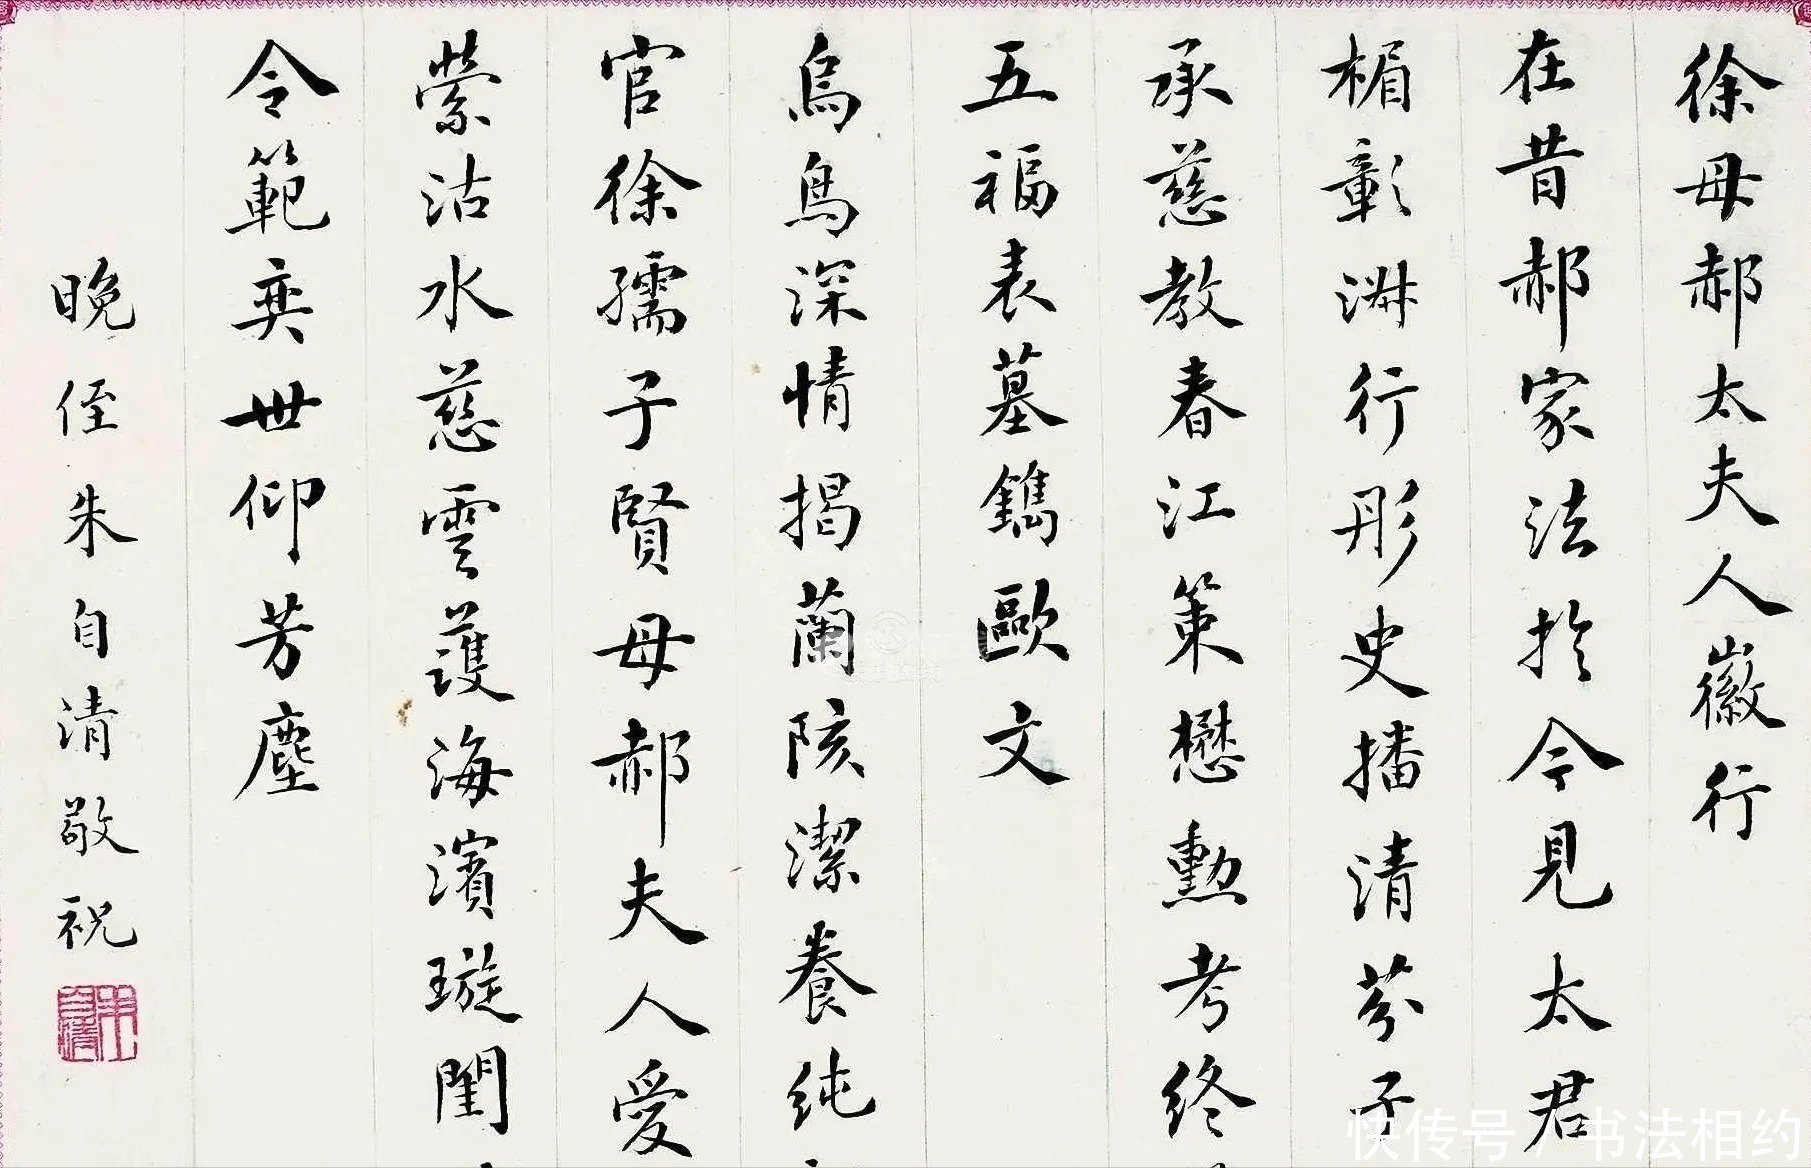 徐母郝太夫人徽行
在昔郝家法於今見太君
楣彰淋行彤史播清芬子
承慈教春江策懋勳考終
五福表墓鐫歐文
烏鳥深情揭蘭陔潔養純
官徐孺子賢母郝夫人愛
縈沽水慈雲護海濱璇閨
令範奕世仰芳塵
晚侄朱自清敬祝
朱自清
快传号/书法相约